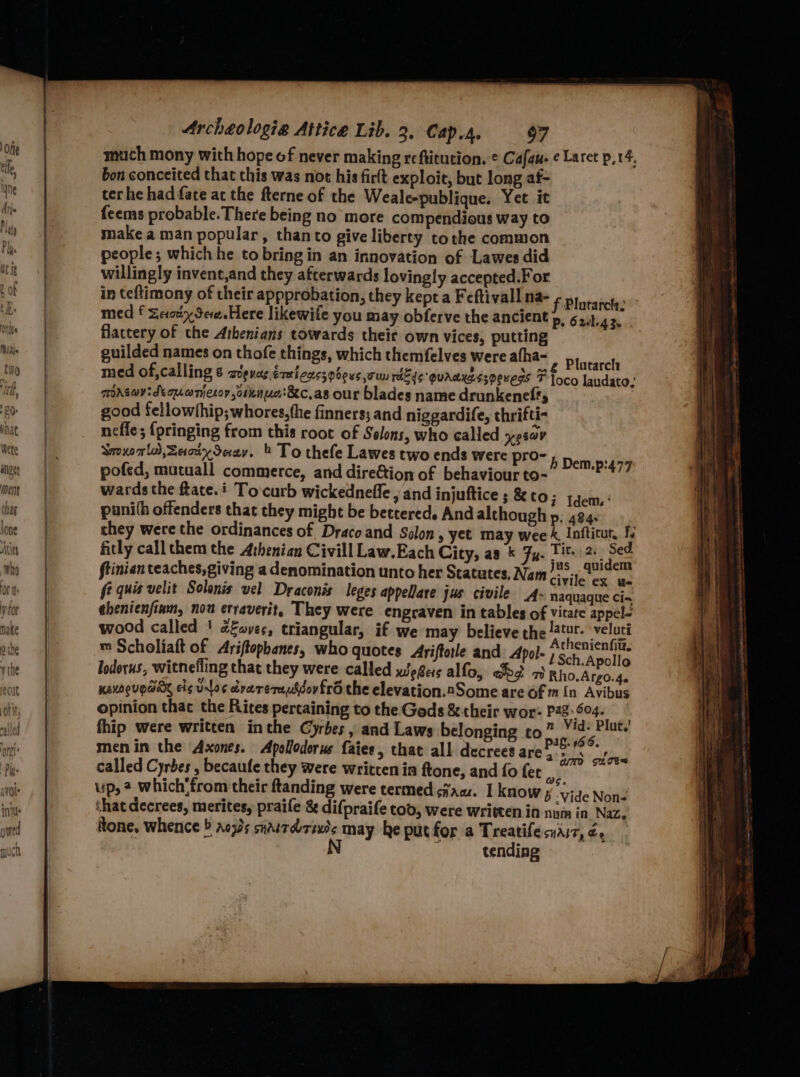 Archæologiæ Atticæ Lib. 3. Cap.4. 97
much mony with hope of never making reſtitution. e Caſau-
bon conceited that this was not his firſt exploit, but long af-
ter he had ſate at the ſterne of the Weale-publique. Yet it
ſeems probable. There being no more compendious way to
make a man popular, than to give liberty to the common
people; which he to bring in an innovation of Lawes did
willingly invent, and they afterwards lovingly accepted. For
in teſtimony of their appprobation, they kept a Feſtivall na-
med f Here likewiſe you may obſerve the ancient
flattery of the Athenians towards their own vices, putting
guilded names on thoſe things, which themſelves were aſha-
med of, calling g
&c. as our blades name drunkeneſs,
good fellowſhip; whores, the ſinners; and niggardiſe, thrifti-
neſſe; ſpringing from this root of Solons, who called
h To theſe Lawes two ends were pro-
poſed, mutuall commerce, and direction of behaviour to-
wards the ſtate. i To curb wickedneſſe, and injuſtice; & to
puniſh offenders that they might be bettered. And although
they were the ordinances of Draco and Solon, yet may wee
fitly call them the Athenian Civill Law. Each City, as k Ju-
ſtinian teaches, giving a denomination unto her Statutes. Nam
ſi quis velit Solonis vel Draconis leges appellare jus civile A-
thenienſium, non erraverit. They were engraven in tables of
wood called l ἄξονες, triangular, if we may believe the
m Scholiaſt of Ariſtophanes, who quotes Ariſtotle and Apol-
lodorus, witneſſing that they were called κύρβεις alſo,
frõ the elevation. n Some are of
opinion that the Rites pertaining to the Gods & their wor-
ſhip were written in the Cyrbes, and Laws belonging to
men in the Axones. Apollodorus ſaies, that all decrees are
called Cyrbes, becauſe they were written in ſtone, and ſo ſet
up, a which from their ſtanding were termed I know
that decrees, merites, praiſe & diſpraiſe too, were written in
ſtone, whence b may be put for a Treatiſe
N tending
e Laret p.14.
f Plutarch.
p. 62.l.43.
g Plutarch
loco laudato.
h Dem.p.477
Idem.
p. 484.
k Inſtitut. l.
Tit. 2. Sed
jus quidem
civile ex u-
naquaque ci-
vitate appel-
latur. veluti
Athenienſiũ.
l Sch. Apollo
Rho. Argo.4.
m In Avibus
pag. 604.
n Vid. Plut.
pag. 166.
a
b Vide Non-
num in Naz.